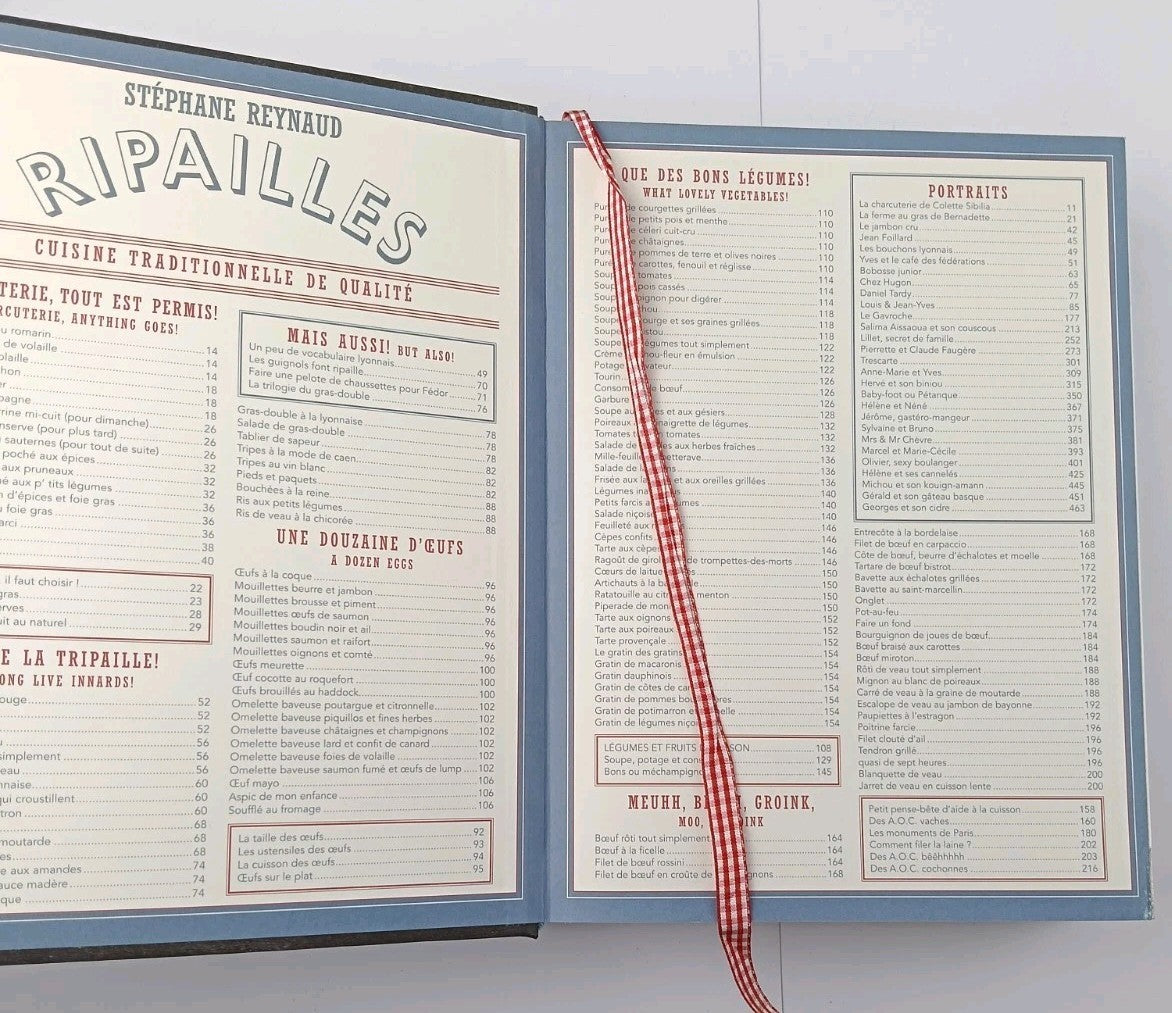 STÉPHANE REYNAUD
RIPAILLES
CUISINE TRADITIONNELLE DE QUALITÉ
TERIE, TOUT EST PERMIS!
RCUTERIE, ANYTHING GOES!
u romarin 14
de volaille 14
olaille 14
hon 18
er 18
pagne 18
rine mi-cuit (pour dimanche) 26
nserve (pour plus tard) 26
sauternes (pour tout de suite) 26
poché aux épices 32
aux pruneaux 32
é aux p' tits légumes 32
n d'épices et foie gras 36
u foie gras 36
arci 36
38
40
il faut choisir ! 22
gras 23
erves 28
uit au naturel 29
E LA TRIPAILLE!
ONG LIVE INNARDS!
ouge 52
52
u 56
simplement 56
eau 60
nnaise 60
qui croustillent 60
tron 68
68
moutarde 68
es 74
e aux amandes 74
auce madère 74
que
MAIS AUSSI! BUT ALSO!
Un peu de vocabulaire lyonnais 49
Les guignols font ripaille 70
Faire une pelote de chaussettes pour Fédor 71
La trilogie du gras-double 76
Gras-double à la lyonnaise 78
Salade de gras-double 78
Tablier de sapeur 78
Tripes à la mode de caen 82
Tripes au vin blanc 82
Pieds et paquets 82
Bouchées à la reine 88
Ris aux petits légumes 88
Ris de veau à la chicorée 88
UNE DOUZAINE D'ŒUFS
A DOZEN EGGS
Œufs à la coque 96
Mouillettes beurre et jambon 96
Mouillettes brousse et piment 96
Mouillettes œufs de saumon 96
Mouillettes boudin noir et ail 96
Mouillettes saumon et raifort 96
Mouillettes oignons et comté 96
Œufs meurette 100
Œuf cocotte au roquefort 100
Œufs brouillés au haddock 100
Omelette baveuse poutargue et citronnelle 102
Omelette baveuse piquillos et fines herbes 102
Omelette baveuse châtaignes et champignons 102
Omelette baveuse lard et confit de canard 102
Omelette baveuse foies de volaille 102
Omelette baveuse saumon fumé et œufs de lump 102
Œuf mayo 106
Aspic de mon enfance 106
Soufflé au fromage 106
La taille des œufs 92
Les ustensiles des œufs 93
La cuisson des œufs 94
Œufs sur le plat 95
QUE DES BONS LÉGUMES!
WHAT LOVELY VEGETABLES!
Pur de courgettes grillées 110
Pu de petits pois et menthe 110
Pu e céleri cuit-cru 110
Pur châtaignes 110
Puré pommes de terre et olives noires 110
Purée carottes, fenouil et réglisse 110
Soup tomates 114
Soup pois cassés 114
Soup ignon pour digérer 114
Soupe hou 118
Soupe ourge et ses graines grillées 118
Soupe istou 118
Soupe légumes tout simplement 122
Crème hou-fleur en émulsion 122
Potage vateur 122
Tourin 126
Consom de bœuf 126
Garbure 126
Soupe au es et aux gésiers 128
Poireaux naigrette de légumes 132
Tomates tomates 132
Salade de es aux herbes fraîches 132
Mille-feuille etterave 136
Salade de l ns 136
Frisée aux la et aux oreilles grillées 136
Légumes ina 140
Petits farcis a gumes 140
Salade niçois 140
Feuilleté aux 146
Cèpes confits 146
Tarte aux cèpe 146
Ragoût de girol de trompettes-des-morts 146
Cœurs de laitue es 150
Artichauts à la ba 150
Ratatouille au citr menton 150
Piperade de mon 150
Tarte aux oignons 152
Tarte aux poireaux 152
Tarte provençale 152
Le gratin des gratins 154
Gratin de macaronis 154
Gratin dauphinois 154
Gratin de côtes de ca 154
Gratin de pommes bou ères 154
Gratin de potimarron e elle 154
Gratin de légumes niço 154
LÉGUMES ET FRUITS D SON 108
Soupe, potage et con 129
Bons ou méchampign 145
MEUHH, B , GROINK,
MOO, OINK
Bœuf rôti tout simplement 164
Bœuf à la ficelle 164
Filet de bœuf rossini 164
Filet de bœuf en croûte de gnons 168
PORTRAITS
La charcuterie de Colette Sibilia 11
La ferme au gras de Bernadette 21
Le jambon cru 42
Jean Foillard 45
Les bouchons lyonnais 49
Yves et le café des fédérations 51
Bobosse junior 63
Chez Hugon 65
Daniel Tardy 77
Louis & Jean-Yves 85
Le Gavroche 177
Salima Aissaoua et son couscous 213
Lillet, secret de famille 252
Pierrette et Claude Faugère 273
Trescarte 301
Anne-Marie et Yves 309
Hervé et son biniou 315
Baby-foot ou Pétanque 350
Hélène et Néné 367
Jérôme, gastéro-mangeur 371
Sylvaine et Bruno 375
Mrs & Mr Chèvre 381
Marcel et Marie-Cécile 393
Olivier, sexy boulanger 401
Hélène et ses cannelés 425
Michou et son kouign-amann 445
Gérald et son gâteau basque 451
Georges et son cidre 463
Entrecôte à la bordelaise 168
Filet de bœuf en carpaccio 168
Côte de bœuf, beurre d'échalotes et moelle 168
Tartare de bœuf bistrot 172
Bavette aux échalotes grillées 172
Bavette au saint-marcellin 172
Onglet 172
Pot-au-feu 174
Faire un fond 174
Bourguignon de joues de bœuf 184
Bœuf braisé aux carottes 184
Bœuf miroton 184
Rôti de veau tout simplement 188
Mignon au blanc de poireaux 188
Carré de veau à la graine de moutarde 188
Escalope de veau au jambon de bayonne 192
Paupiettes à l'estragon 192
Poitrine farcie 196
Filet clouté d'ail 196
Tendron grillé 196
quasi de sept heures 196
Blanquette de veau 200
Jarret de veau en cuisson lente 200
Petit pense-bête d'aide à la cuisson 158
Des A.O.C. vaches 160
Les monuments de Paris 180
Comment filer la laine ? 202
Des A.O.C. bêêhhhhh 203
Des A.O.C. cochonnes 216